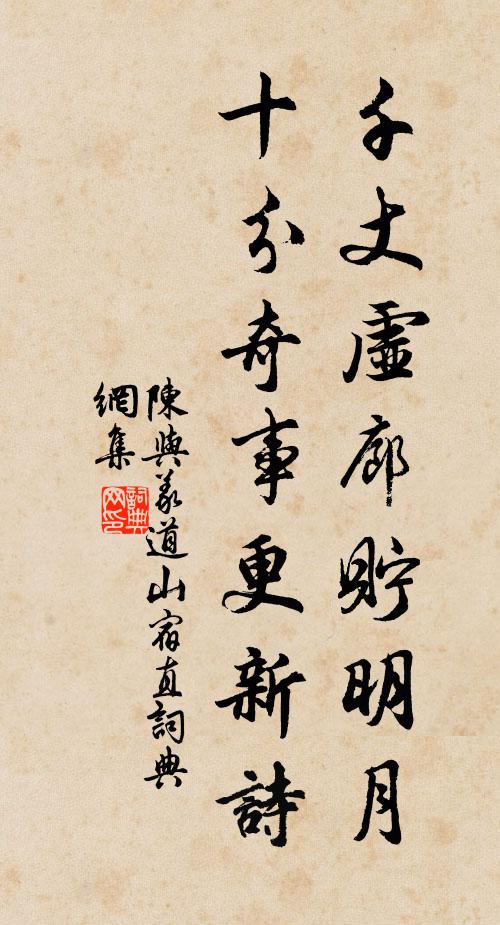 千丈虛廊貯明月
十分奇事更新詩
陳與義道山宿直詞典
網集
詞典
网印